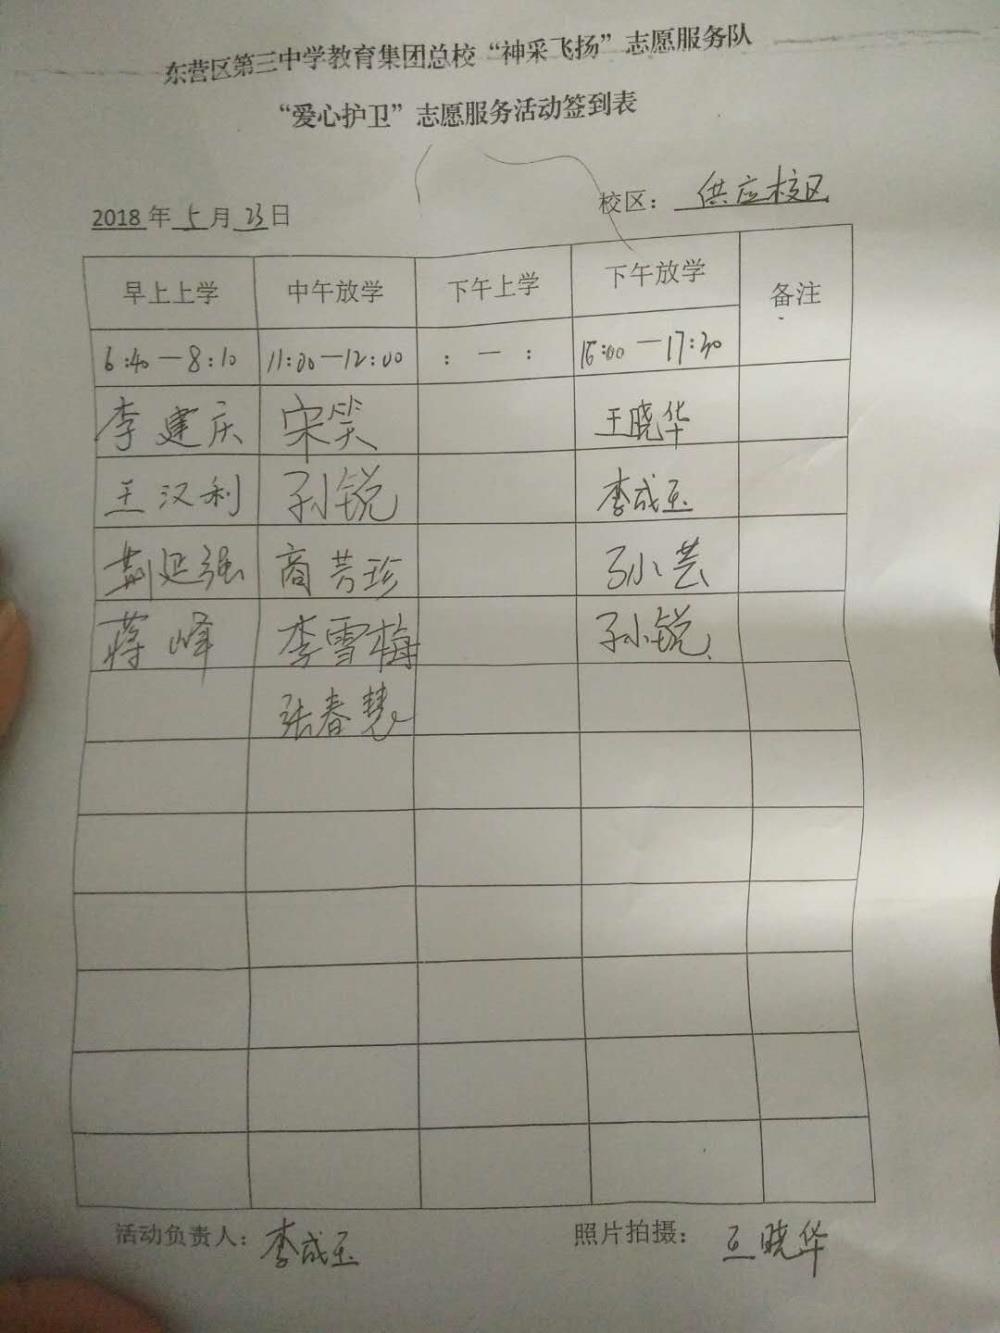 东营区第三中学教育集团总校“神采飞扬”志愿服务队
“爱心护卫”志愿服务活动签到表
2018年5月23日 校区：供应校区
早上上学 中午放学 下午上学 下午放学 备注
6:40—8:10 11:00—12:00 : — : 16:00—17:30
李建庆 宋笑 王晓华
王汉利 孙锐 李成玉
荆延强 商芳珍 孙小芸
蒋峰 李雪梅 孙锐
张春慧
活动负责人：李成玉 照片拍摄：王晓华